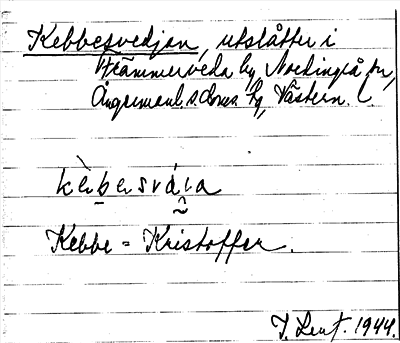 Kebbesvedjan, utslåtter i
Hämmerveda by, Nordingrå sn,
Ångermanl. s. doms. tg, Västern. l.
kèbesváia
Kebbe = Kristoffer.
1944.